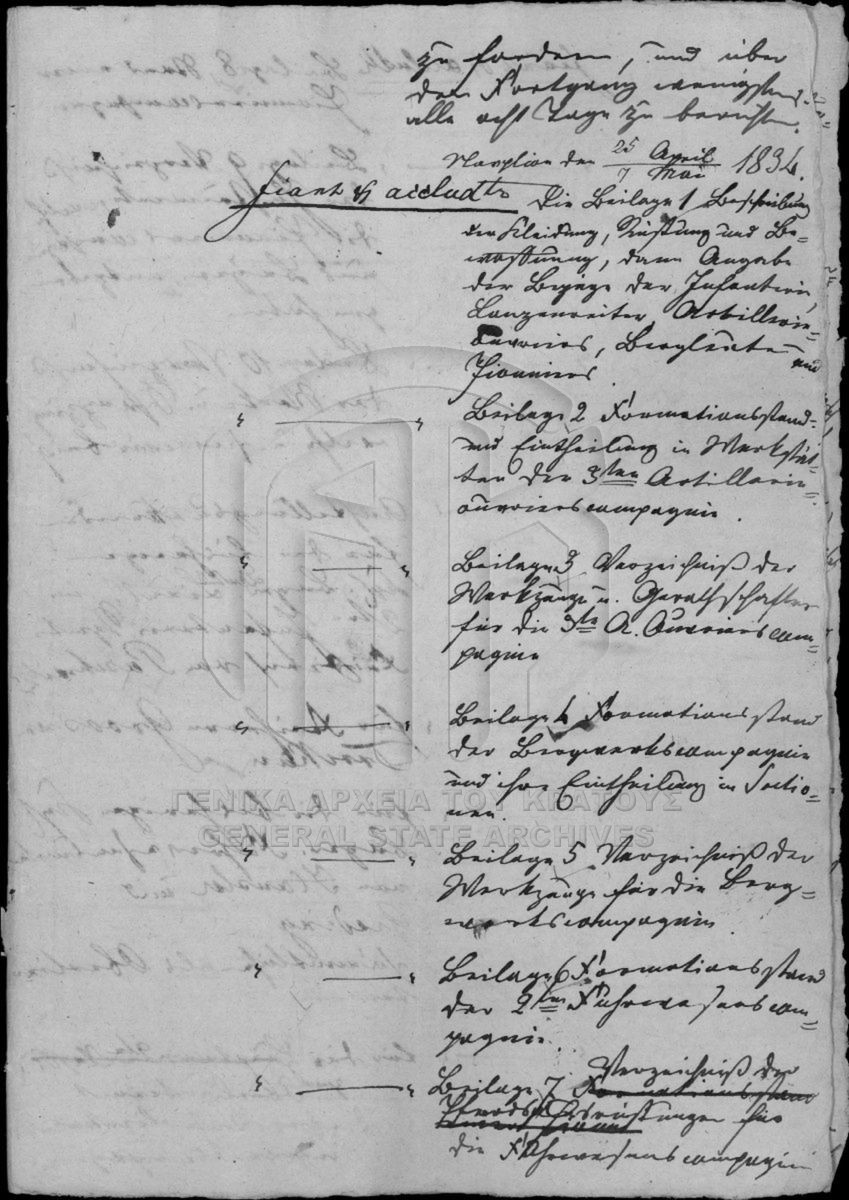 zu fordern, und über
den Fortgang wenigstens
alle acht Tage zu berichten.
Nauplion den 25 April / 7 Mai 1834.
fiant & accludtr
Die Beilage 1 Beschreibung
der Kleidung, Rüstung und Be=
waffnung, dann Angabe
der Bezüge der Infanterie,
Lanzenreiter, Artillerie=
ouvriers, Bergleute und
Pionniers
" — " Beilage 2 Formationsstand
und Eintheilung in Werkstät=
ten der 3ten Artillerie=
ouvrierscompagnie.
" — " Beilage 3 Verzeichniß der
Werkzeuge u. Geräthschaften
für die 3te A. Ouvrierscom=
pagnie
" — " Beilage 4 Formationsstand
der Bergwerkscompagnie
und ihre Eintheilung in Sectio=
nen.
" — " Beilage 5 Verzeichniß der
Werkzeuge für die Berg=
werkscompagnie
" — " Beilage 6 Formationsstand
der 2ten Fuhrwesenscom=
pagnie.
" — " Beilage 7 Verzeichniß der
Formationsstand
Pferds Ausrüstungen für
die Fuhrwesenscompagnie
ΓΕΝΙΚΑ ΑΡΧΕΙΑ ΤΟΥ ΚΡΑΤΟΥΣ
GENERAL STATE ARCHIVES